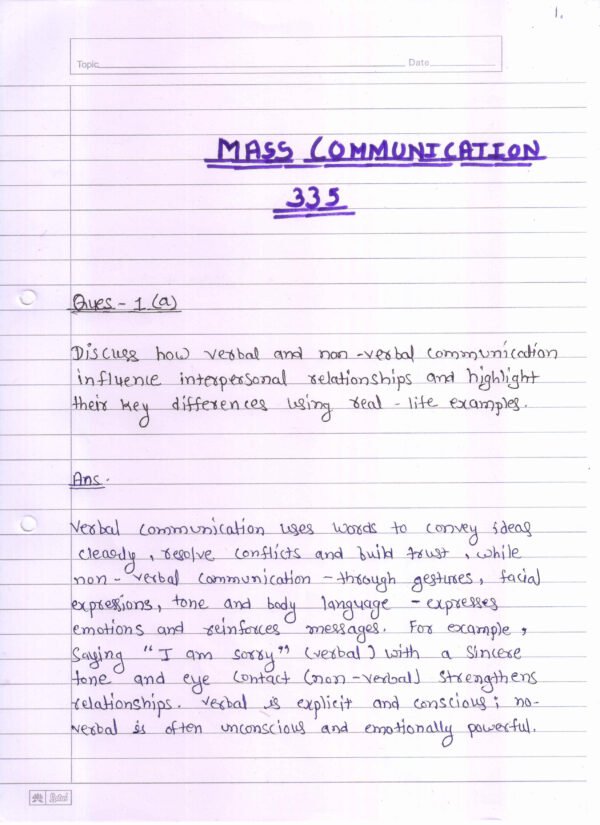 1.
Topic Date
MASS COMMUNICATION
335
Ques - 1 (a)
Discuss how verbal and non-verbal communication
influence interpersonal relationships and highlight
their key differences using real-life examples.
Ans.
Verbal communication uses words to convey ideas
clearly, resolve conflicts and build trust, while
non-verbal communication - through gestures, facial
expressions, tone and body language - expresses
emotions and reinforces messages. For example,
Saying "I am sorry" (verbal) with a sincere
tone and eye contact (non-verbal) strengthens
relationships. Verbal is explicit and conscious; no-
verbal is often unconscious and emotionally powerful.